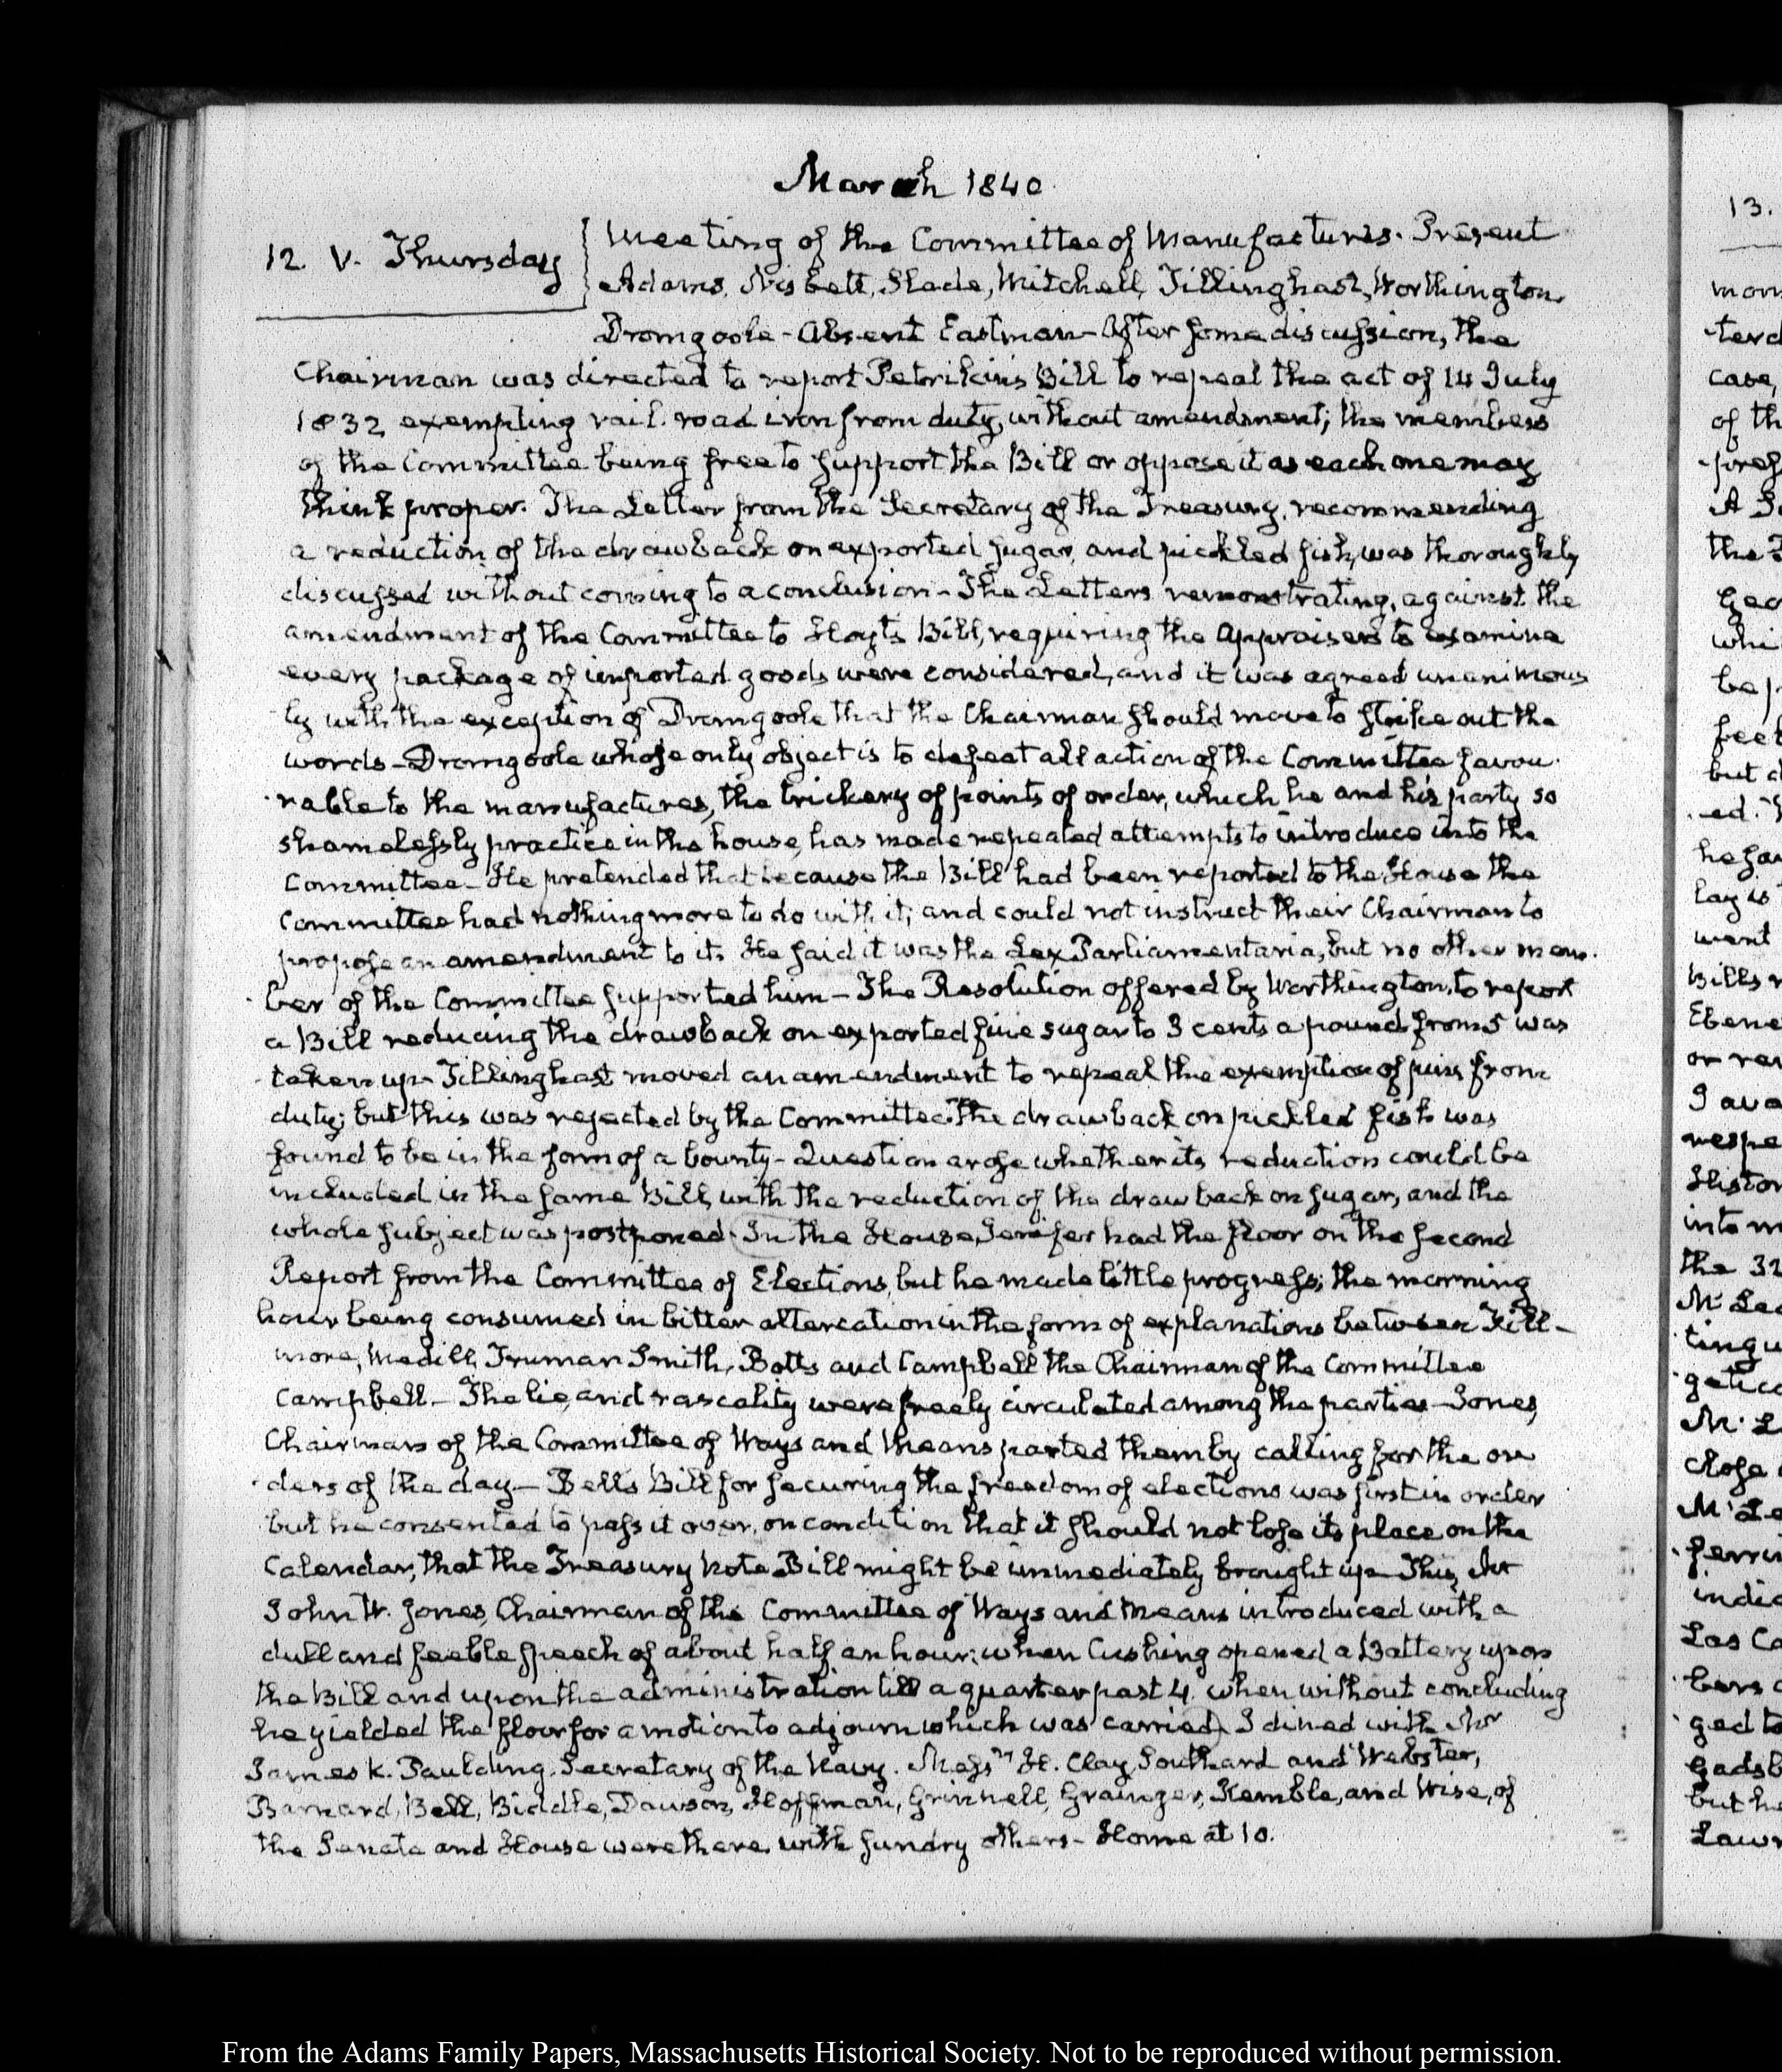 March 1840.
12. V. Thursday
Meeting of the Committee of Manufactures. Present
Adams, Nisbett, Slade, Mitchell, Tillinghast, Worthington,
Dromgoole - Absent Eastman - After some discussion, the
Chairman was directed to report Petrikin's Bill to repeal the act of 14 July
1832 exempting rail-road iron from duty, without amendment; the members
of the Committee being free to support the Bill or oppose it as each one may
think proper. The Letter from the Secretary of the Treasury, recommending
a reduction of the drawback on exported sugar, and pickled fish, was thoroughly
discussed without coming to a conclusion - The Letters remonstrating, against the
amendment of the Committee to Hoyt's Bill, requiring the Appraisers to examine
every package of imported goods were considered, and it was agreed unanimous
ly with the exception of Dromgoole that the Chairman should move to strike out the
words - Dromgoole whose only object is to defeat all action of the Committee favou-
rable to the manufactures, the trickery of points of order, which he and his party so
shamelessly practice in the house, has made repeated attempts to introduce into the
Committee - He pretended that because the Bill had been reported to the House the
Committee had nothing more to do with it; and could not instruct their Chairman to
propose an amendment to it. He said it was the Lex Parliamentaria, but no other mem-
ber of the Committee supported him - The Resolution offered by Worthington, to report
a Bill reducing the drawback on exported fine sugar to 3 cents a pound from 5 was
taken up - Tillinghast moved an amendment to repeal the exemption of pins from
duty; but this was rejected by the Committee. The drawback on pickled fish was
found to be in the form of a bounty - Question arose whether its reduction could be
included in the same Bill, with the reduction of the drawback on sugar, and the
whole subject was postponed. In the House, Jenifer had the floor on the second
Report from the Committee of Elections, but he made little progress; the morning
hour being consumed in bitter altercation in the form of explanations between Fill-
more, Medill, Truman Smith, Botts and Campbell the Chairman of the Committee
Campbell. - The lie, and rascality were freely circulated among the parties - Jones,
Chairman of the Committee of Ways and Means parted them by calling for the or
ders of the day. - Bell's Bill for securing the freedom of elections was first in order
but he consented to pass it over, on condition that it should not lose its place on the
Calendar, that the Treasury Note Bill might be immediately brought up - This, Mr
John W. Jones, Chairman of the Committee of Ways and Means introduced with a
dull and feeble speech of about half an hour; when Cushing opened a Battery upon
the Bill and upon the administration till a quarter past 4. when without concluding
he yielded the floor for a motion to adjourn which was carried. I dined with Mr
James K. Paulding, Secretary of the Navy. Mess.rs H. Clay, Southard and Webster,
Barnard, Bell, Biddle, Dawson, Hoffman, Grinnell, Granger, Kemble, and Wise, of
the Senate and House were there, with sundry others - Home at 10.
13.
case,
of th
the
whi
but
lay is
went
Bills
Ebene
Histor
into m
the 32
close
indic
Las Ca
ged to
but he
From the Adams Family Papers, Massachusetts Historical Society. Not to be reproduced without permission.